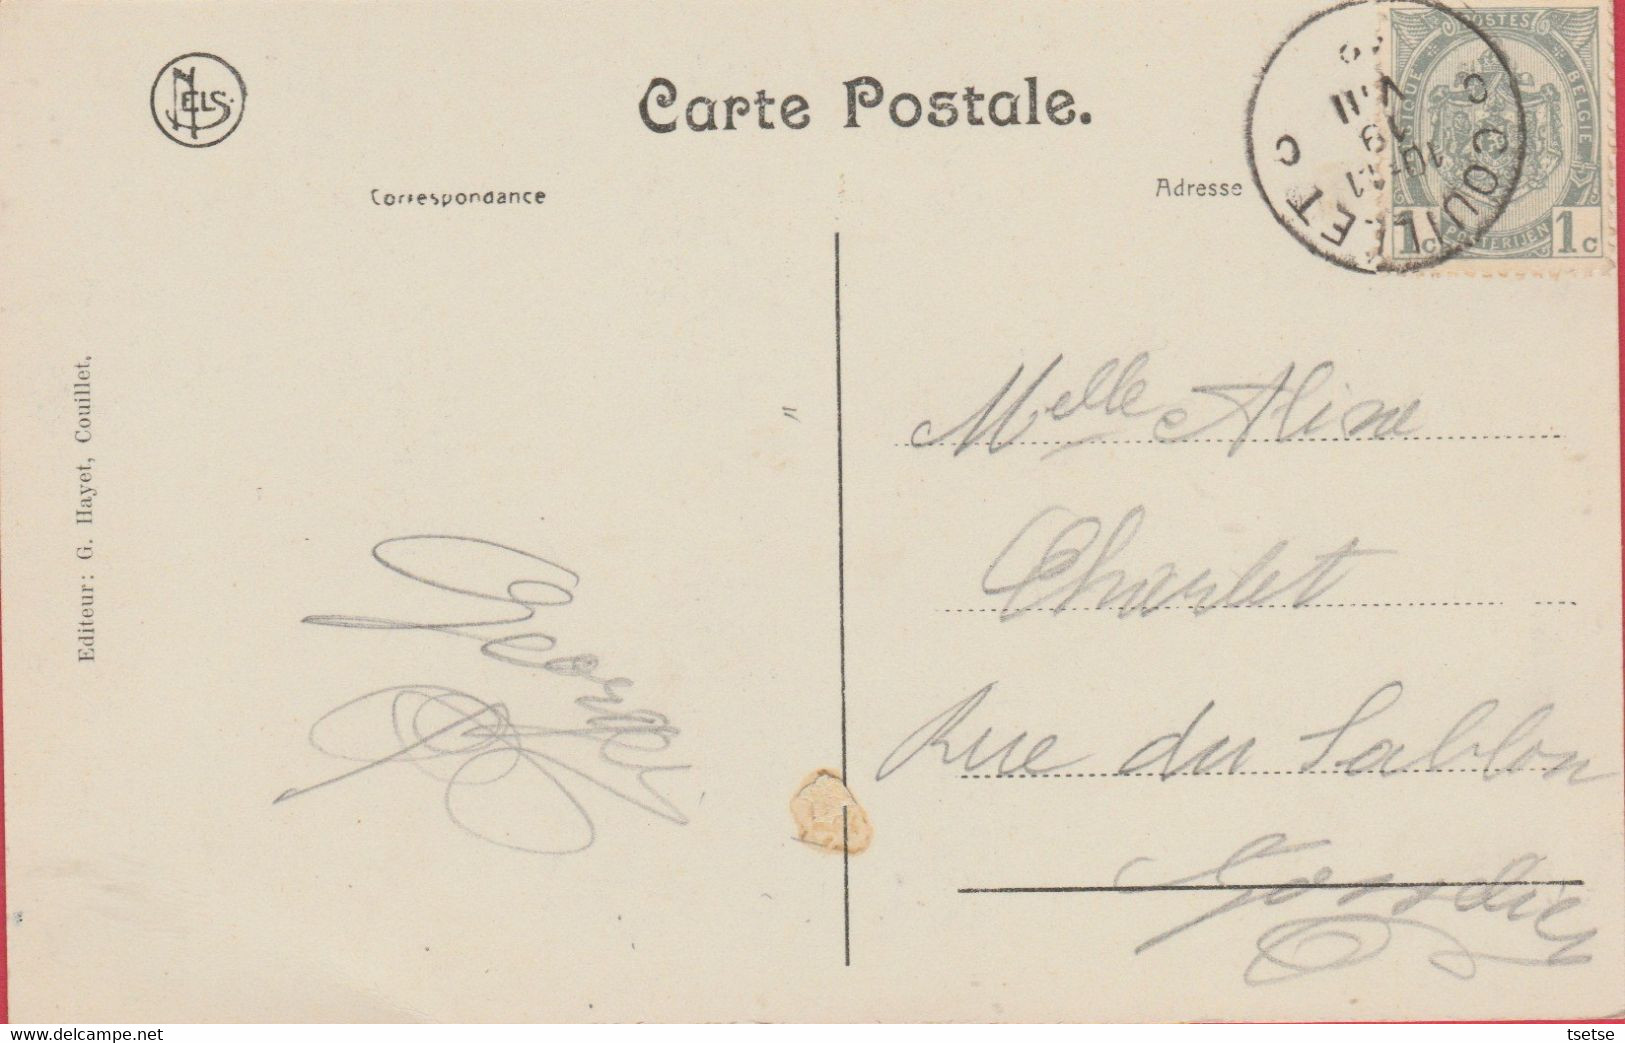 NELS.
Carte Postale.
Correspondance
Adresse
C COUILLET C
10-11
19
VIII
POSTES
BELGIQUE
BELGIE
POSTERIJEN
1c 1c
Editeur: G. Hayet, Couillet.
Melle Aline
Charlet
Rue du Sablon
Gosselies
Georges
www.delcampe.net
tsetse